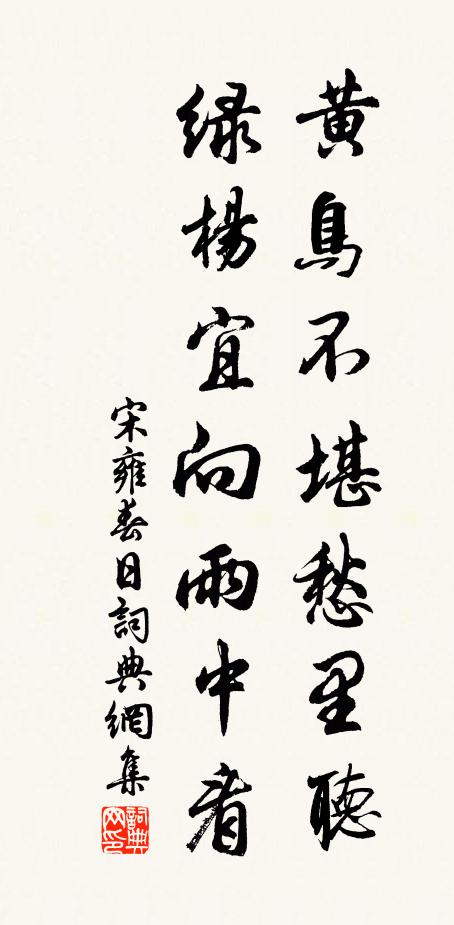 黄鳥不堪愁里聽
綠楊宜向雨中看
宋雍春日詞典網集
詞典
网印